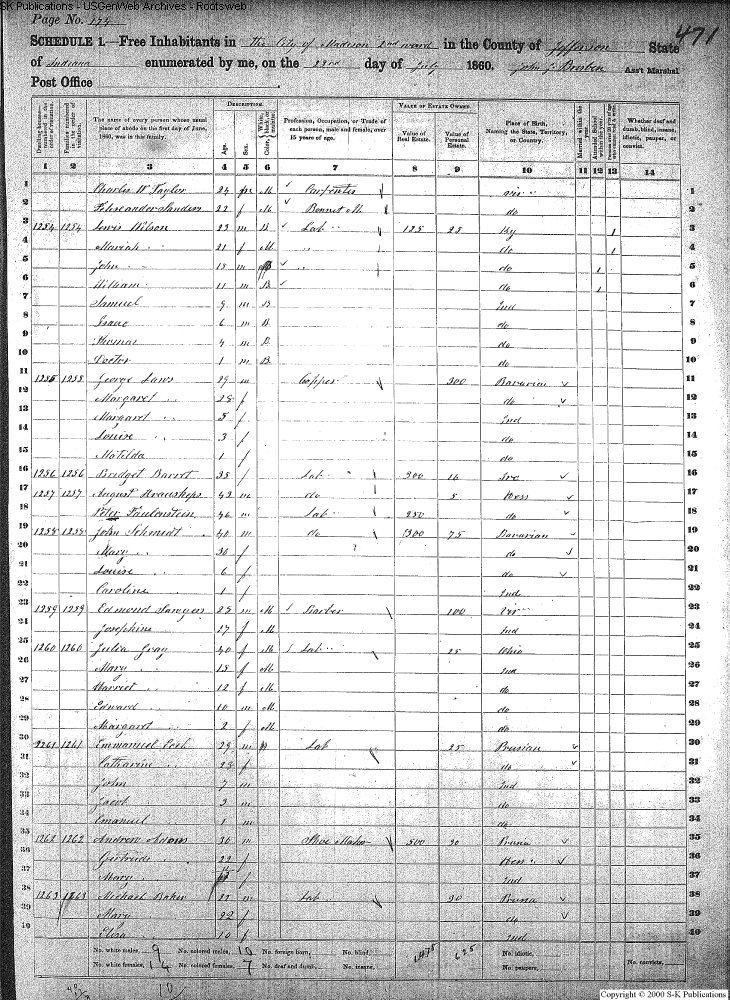 S-K Publications - USGenWeb Archives - Rootsweb
Page No. 174
471
SCHEDULE 1.—Free Inhabitants in The City of Madison 2nd ward in the County of Jefferson State
of Indiana enumerated by me, on the 22nd day of July 1860. John J. Ass't Marshal
Post Office
Dwelling-houses—numbered in the order of visitation.
Families numbered in the order of visitation.
The name of every person whose usual place of abode on the first day of June, 1860, was in this family.
DESCRIPTION.
Age.
Sex.
Color, White, black, or mulatto.
Profession, Occupation, or Trade of each person, male and female, over 15 years of age.
VALUE OF ESTATE OWNED.
Value of Real Estate.
Value of Personal Estate.
Place of Birth, Naming the State, Territory, or Country.
Married within the year.
Attended School within the year.
Whether deaf and dumb, blind, insane, idiotic, pauper, or convict.
1 2 3 4 5 6 7 8 9 10 11 12 13 14
1 Charles W Taylor 24 m M Carpenter 1
2 Sanders 22 f M Bonnet M. do 2
3 1254 1254 Lewis Wilson 23 m B Lab 125 25 Ky 1 3
4 Mariah 21 f M " do 1 4
5 John 15 m B " do 1 5
6 William 11 m B do 1 6
7 Samuel 9 m B Ind 7
8 Isaac 6 m B do 8
9 Thomas 4 m B do 9
10 Doctor 1 m B do 10
11 1255 1255 George Laws 29 m Copper 300 Bavaria 11
12 Margaret 28 f do 12
13 Margaret 5 f Ind 13
14 Louise 3 f do 14
15 Matilda 1 f do 15
16 1256 1256 Bridget Barret 35 f Lab 300 16 Ire 16
17 1257 1257 August 43 m do 5 Hess 17
18 Peter Faulenstein 46 m Lab 250 do 18
19 1258 1258 John Schmidt 40 m do 300 75 Bavarian 19
20 Mary 30 f do 20
21 Louise 6 f do 21
22 Caroline 1 f Ind 22
23 1259 1259 Edmond Sawyers 25 m M Barber 100 Vir 23
24 Josephine 27 f M Ind 24
25 1260 1260 Julia Gray 40 f M Lab 25 Ohio 25
26 Mary 15 f M Ind 26
27 Harriet 12 f M do 27
28 Edward 10 m M do 28
29 Margaret 2 f M do 29
30 1261 1261 Emmanuel 29 m Lab 25 Prusian 30
31 Catharine 28 f do 31
32 John 7 m Ind 32
33 Jacob 3 m do 33
34 Emanuel 1 m do 34
35 1262 1262 Andrew Adams 30 m Shoe Maker 500 30 35
36 Gertrude 22 f 36
37 Mary f Ind 37
38 1263 1263 Michael Baker m Lab 30 38
39 Mary 22 f do 39
40 Eliza f Ind 40
No. white males, 9 No. colored males, 10 No. foreign born, No. blind, 1475 625 No. idiotic,
No. white females, 14 No. colored females, 7 No. deaf and dumb, No. insane, No. paupers, No. convicts,
Copyright © 2000 S-K Publications